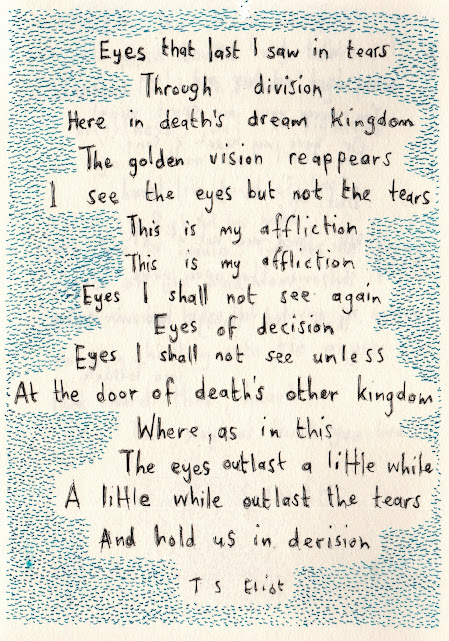 Eyes that last I saw in tears
Through division
Here in death's dream kingdom
The golden vision reappears
I see the eyes but not the tears
This is my affliction
This is my affliction
Eyes I shall not see again
Eyes of decision
Eyes I shall not see unless
At the door of death's other kingdom
Where, as in this
The eyes outlast a little while
A little while outlast the tears
And hold us in derision
T S Eliot